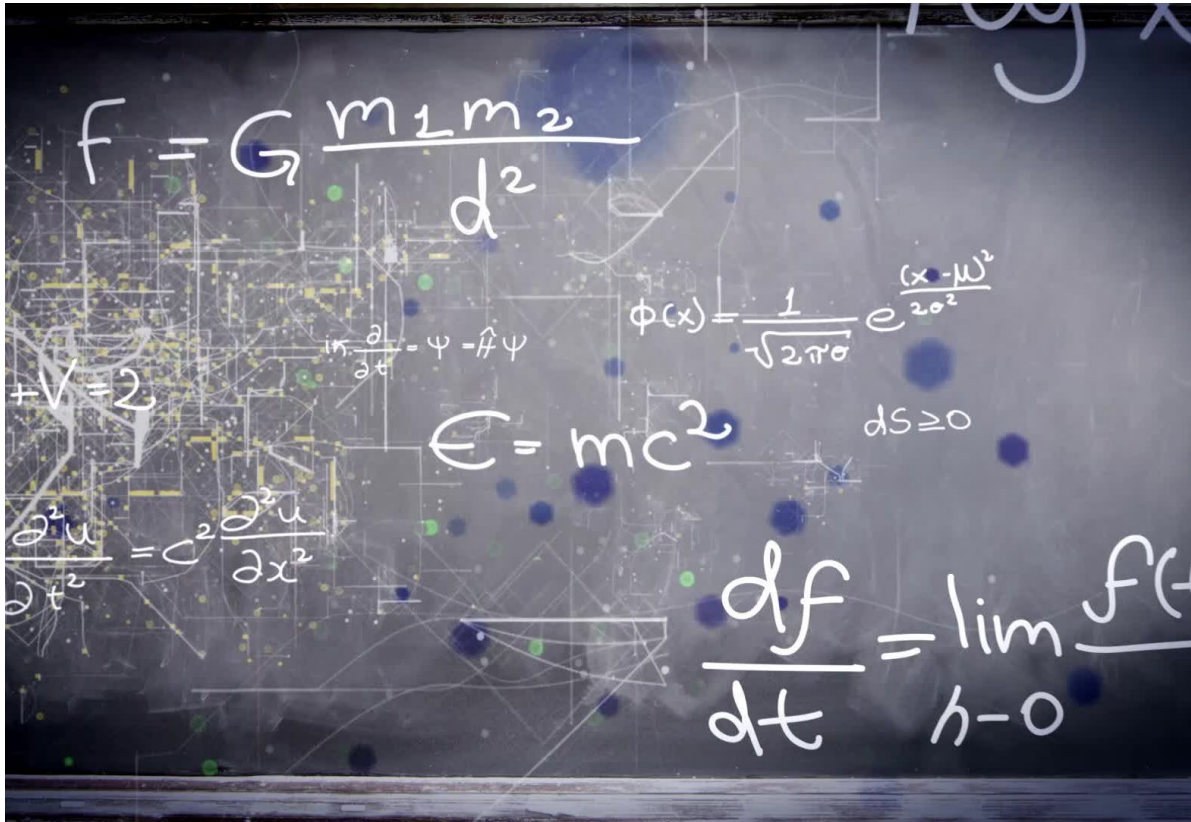 log x
f = G m1m2 / d²
φ(x) = 1 / √2πσ e^(x-μ)² / 2σ²
iħ ∂/∂t = Ψ = Ĥ Ψ
+V=2
Є = mc²
dS ≥ 0
∂²u / ∂t² = c² ∂²u / ∂x²
df / dt = lim h-0 f(t